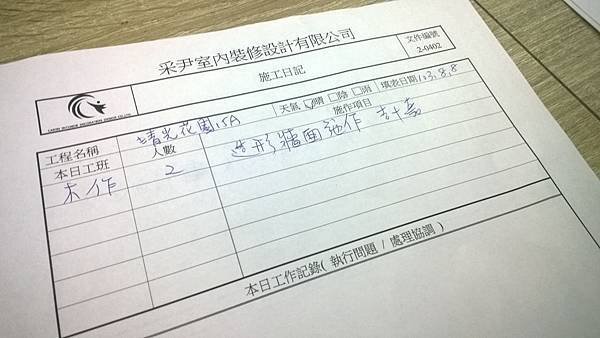 采尹室內裝修設計有限公司
文件編號
2-0402
施工日記
工程名稱 晴光花園15A 天氣 ☑晴 □陰 □雨 填表日期 103.8.8
本日工班 人數 施作項目
木作 2 造形牆面施作
本日工作記錄( 執行問題 / 處理協調 )